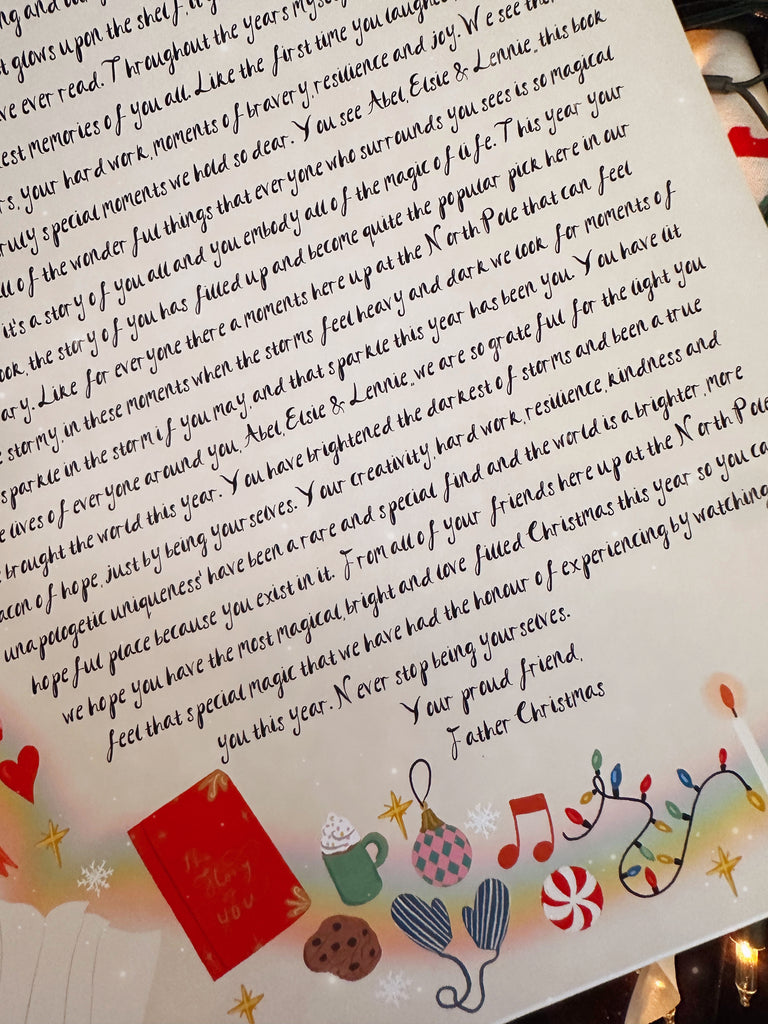 ng and
t glows upon the shelf, it
ve ever read. Throughout the years mys
est memories of you all. Like the first time you laughed
rs, your hard work, moments of bravery, resilience and joy. We see the
ruly special moments we hold so dear. You see Abel, Elsie & Lennie, this book
ll of the wonderful things that everyone who surrounds you sees is so magical
it's a story of you all and you embody all of the magic of life. This year your
ook, the story of you has filled up and become quite the popular pick here in our
ary. Like for everyone there a moments here up at the North Pole that can feel
stormy, in these moments when the storms feel heavy and dark we look for moments of
sparkle in the storm if you may, and that sparkle this year has been you. You have lit
e lives of everyone around you, Abel, Elsie & Lennie, we are so grateful for the light you
brought the world this year. You have brightened the darkest of storms and been a true
acon of hope, just by being yourselves. Your creativity, hard work, resilience, kindness and
unapologetic uniqueness' have been a rare and special find and the world is a brighter, more
hopeful place because you exist in it. From all of your friends here up at the North Pole
we hope you have the most magical, bright and love filled Christmas this year so you ca
feel that special magic that we have had the honour of experiencing by watching
you this year. Never stop being yourselves.
Your proud friend,
Father Christmas
The
Story
of
YOU